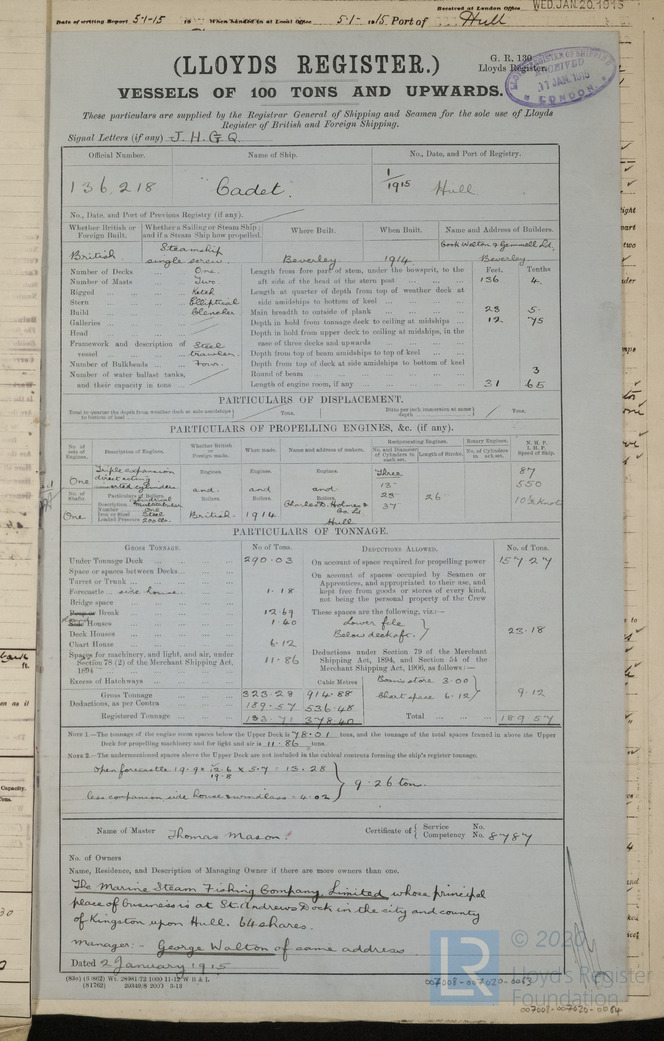 Received at London Office WED. JAN. 20. 1915
Date of writing Report 5-1-15 19 When handed in at Local Office 5-1-1915 Port of Hull
G. R. 130
Lloyds Register.
(LLOYDS REGISTER.)
VESSELS OF 100 TONS AND UPWARDS.
These particulars are supplied by the Registrar General of Shipping and Seamen for the sole use of Lloyds
Register of British and Foreign Shipping.
Signal Letters (if any) J. H. G. Q.
Official Number. Name of Ship. No., Date, and Port of Registry.
136,218 "Cadet" 1/1915 Hull
No., Date, and Port of Previous Registry (if any).
Whether British or Foreign Built. Whether a Sailing or Steam Ship; and if a Steam Ship how propelled. Where Built. When Built. Name and Address of Builders.
British Steamship single screw. Beverley 1914 Cook Welton & Gemmell Ld. Beverley
Number of Decks One.
Number of Masts Two
Rigged Ketch
Stern Elliptical
Build Clencher
Galleries
Head
Framework and description of vessel Steel trawler
Number of Bulkheads Four.
Number of water ballast tanks, and their capacity in tons
Feet. Tenths
Length from fore part of stem, under the bowsprit, to the aft side of the head of the stern post 136 4.
Length at quarter of depth from top of weather deck at side amidships to bottom of keel
Main breadth to outside of plank 23 5.
Depth in hold from tonnage deck to ceiling at midships 12. 75
Depth in hold from upper deck to ceiling at midships, in the case of three decks and upwards
Depth from top of beam amidships to top of keel
Depth from top of deck at side amidships to bottom of keel
Round of beam 3
Length of engine room, if any 31 65
PARTICULARS OF DISPLACEMENT.
Total to quarter the depth from weather deck at side amidships to bottom of keel Tons. Ditto per inch immersion at same depth Tons.
PARTICULARS OF PROPELLING ENGINES, &c. (if any).
No. of sets of Engines. Description of Engines. Whether British or Foreign made. When made. Name and address of makers. Reciprocating Engines. Rotary Engines. N. H. P. I. H. P. Speed of Ship.
No. and Diameter of Cylinders in each set. Length of Stroke. No. of Cylinders in each set.
One Triple expansion direct acting inverted cylinders Engines. Engines. Engines. Three 87
13 550
No. of Shafts. Particulars of Boilers. and and and 23 26 10½ Knots
Description Cylindrical multitubular Boilers. Boilers. Boilers. 37
Number One
Iron or Steel Steel
Loaded Pressure 200 lbs.
One British. 1914 Charles D. Holmes & Co. Ld Hull
PARTICULARS OF TONNAGE.
GROSS TONNAGE. No of Tons. DEDUCTIONS ALLOWED. No. of Tons.
Under Tonnage Deck 290.03
Space or spaces between Decks
Turret or Trunk
Forecastle side house 1.18
Bridge space
Poop or Break 12.69
Side Houses 1.40
Deck Houses
Chart House 6.12
Spaces for machinery, and light, and air, under Section 78 (2) of the Merchant Shipping Act, 1894 11.86
Excess of Hatchways
Cubic Metres
Gross Tonnage 323.28 914.88
Deductions, as per Contra 189.57 536.48
Registered Tonnage 133.71 378.40
On account of space required for propelling power 157.27
On account of spaces occupied by Seamen or Apprentices, and appropriated to their use, and kept free from goods or stores of every kind, not being the personal property of the Crew
These spaces are the following, viz.:—
Lower fcle
Below deck aft. 23.18
Deductions under Section 79 of the Merchant Shipping Act, 1894, and Section 54 of the Merchant Shipping Act, 1906, as follows:—
Bosns store 3.00
Chart space 6.12 9.12
Total 189.57
NOTE 1.—The tonnage of the engine room spaces below the Upper Deck is 78.01 tons, and the tonnage of the total spaces framed in above the Upper
Deck for propelling machinery and for light and air is 11.86 tons.
NOTE 2.—The undermentioned spaces above the Upper Deck are not included in the cubical contents forming the ship's register tonnage.
open forecastle 19.9 x 12.6 x 5.7 = 13.28
19.8
9.26 tons.
less companion, side house & windlass = 4.02
Name of Master Thomas Mason. Certificate of { Service No. Competency No. 8787
No. of Owners
Name, Residence, and Description of Managing Owner if there are more owners than one.
The Marine Steam Fishing Company, Limited whose principal
place of business is at St. Andrews Dock in the city and county
of Kingston upon Hull. 64 shares.
Manager:- George Walton of same address
Dated 2 January 1915
© 2020
LR Lloyd's Register
Foundation
007008-007020-0063
007008-007020-0064